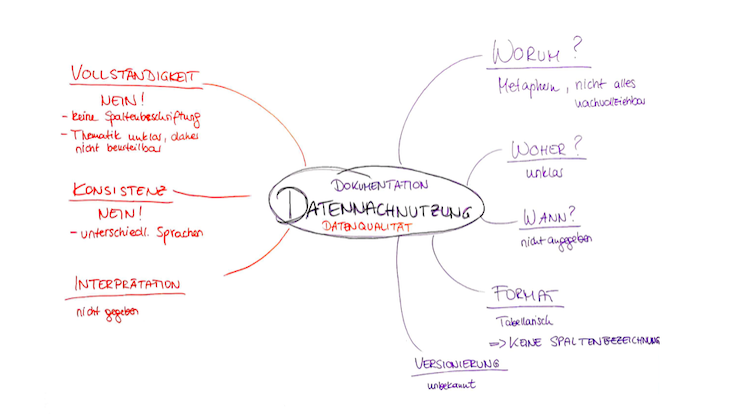 VOLLSTÄNDIGKEIT
NEIN!
- keine Spaltenbeschriftung
- Thematik unklar, daher
nicht beurteilbar
KONSISTENZ
NEIN!
- unterschiedl. Sprachen
INTERPRÄTATION
nicht gegeben
DOKUMENTATION
DATENNACHNUTZUNG
DATENQUALITÄT
WORUM?
Metaphern, nicht alles
nachvollziehbar
WOHER?
unklar
WANN?
nicht angegeben
FORMAT
Tabellarisch
=> KEINE SPALTENBEZEICHNUNG
VERSIONIERUNG
unbekannt